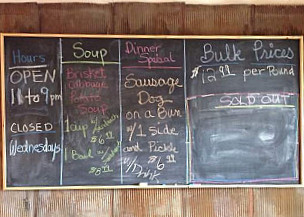 Hours
OPEN
11 to 9 pm
CLOSED
Wednesdays
Soup
Brisket
Cabbage
Potato
Soup
1 cup
$6
1 Bowl w/
$8
Dinner
Special
Sausage
Dog
on a Bun
w/1 side
and Pickle
$6
Bulk Prices
$12.99 per Pound
SOLD OUT